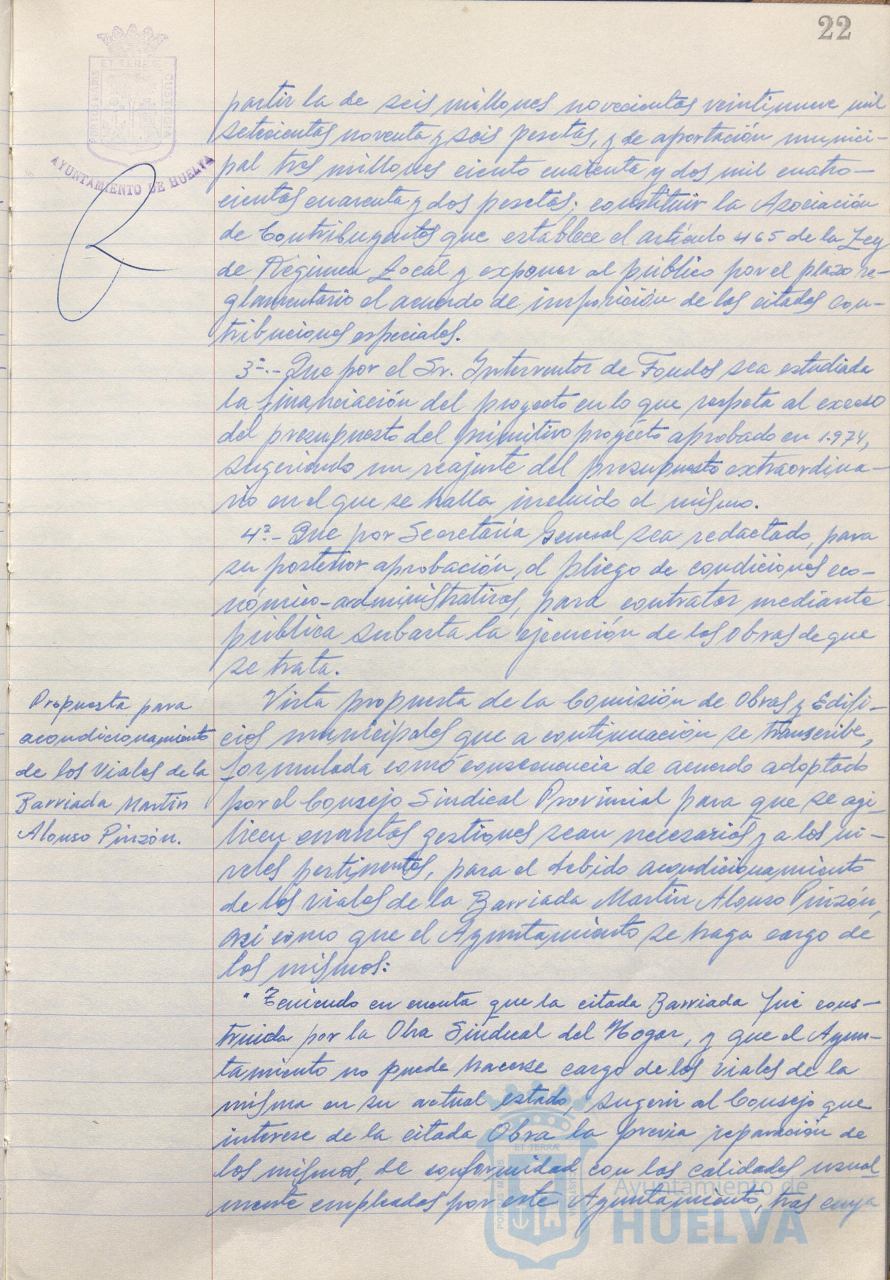 22
PORTUS MARIS ET TERRÆ CUSTODIA
AYUNTAMIENTO DE HUELVA
partir la de seis millones novecientas veintinueve mil
setecientas noventa y seis pesetas, y de aportación munici-
pal tres millones ciento cuarenta y dos mil cuatro-
cientas cuarenta y dos pesetas; constituir la Asociación
de Contribuyentes que establece el artículo 465 de la Ley
de Régimen Local y exponer al público por el plazo re-
glamentario el acuerdo de imposición de las citadas con-
tribuciones especiales.
3º.- Que por el Sr. Interventor de Fondos sea estudiada
la financiación del proyecto en lo que respeta al exceso
del presupuesto del primitivo proyecto aprobado en 1.974,
sugeriendo un reajuste del presupuesto extraordina-
rio en el que se halla incluido el mismo.
4º.- Que por Secretaría General sea redactado, para
su posterior aprobación, el pliego de condiciones eco-
nómico-administrativas, para contratar mediante
pública subasta la ejecución de las obras de que
se trata.
Propuesta para
acondicionamiento
de los viales de la
Barriada Martín
Alonso Pinzón.
Vista propuesta de la Comisión de Obras y Edifi-
cios municipales que a continuación se transcribe,
formulada como consecuencia de acuerdo adoptado
por el Consejo Sindical Provincial para que se agi-
licen cuantas gestiones sean necesarias y a los ni-
veles pertinentes, para el debido acondicionamiento
de los viales de la Barriada Martín Alonso Pinzón,
así como que el Ayuntamiento se haga cargo de
los mismos:
"Teniendo en cuenta que la citada Barriada fue cons-
truida por la Obra Sindical del Hogar, y que el Ayun-
tamiento no puede hacerse cargo de los viales de la
misma en su actual estado, sugerir al Consejo que
interese de la citada Obra la previa reparación de
los mismos, de conformidad con las calidades usual
mente empleadas por este Ayuntamiento, tras cuya
Ayuntamiento de
HUELVA